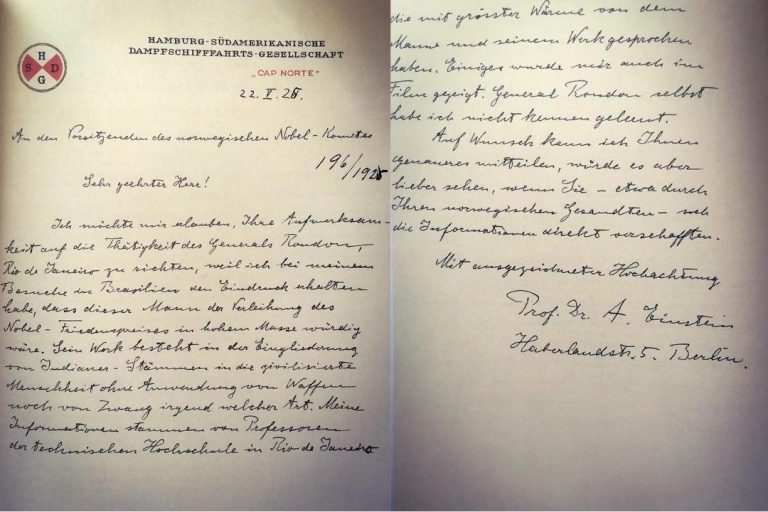 H
S D
G
HAMBURG-SÜDAMERIKANISCHE
DAMPFSCHIFFFAHRTS-GESELLSCHAFT
„CAP NORTE"
22. V. 25.
An den Vorsitzenden des norwegischen Nobel-Komites
196/1925
Sehr geehrter Herr!
Ich möchte mir erlauben, Ihre Aufmerksam-
keit auf die Thätigkeit des Generals Rondon,
Rio de Janeiro zu richten, weil ich bei meinem
Besuche in Brasilien den Eindruck erhalten
habe, dass dieser Mann der Verleihung des
Nobel-Friedenspreises in hohem Masse würdig
wäre. Sein Werk besteht in der Eingliederung
von Indianer-Stämmen in die zivilisierte
Menschheit ohne Anwendung von Waffen
noch von Zwang irgend welcher Art. Meine
Informationen stammen von Professoren
der technischen Hochschule in Rio de Janeiro
die mit grösster Wärme von dem
Manne und seinem Werk gesprochen
haben. Einiges wurde mir auch im
Film gezeigt. General Rondon selbst
habe ich nicht kennen gelernt.
Auf Wunsch kann ich Ihnen
Genaueres mitteilen, würde es aber
lieber sehen, wenn Sie – etwa durch
Ihren norwegischen Gesandten – sich
die Informationen direkt verschafften.
Mit ausgezeichneter Hochachtung
Prof. Dr. A. Einstein
Haberlandstr. 5. Berlin.